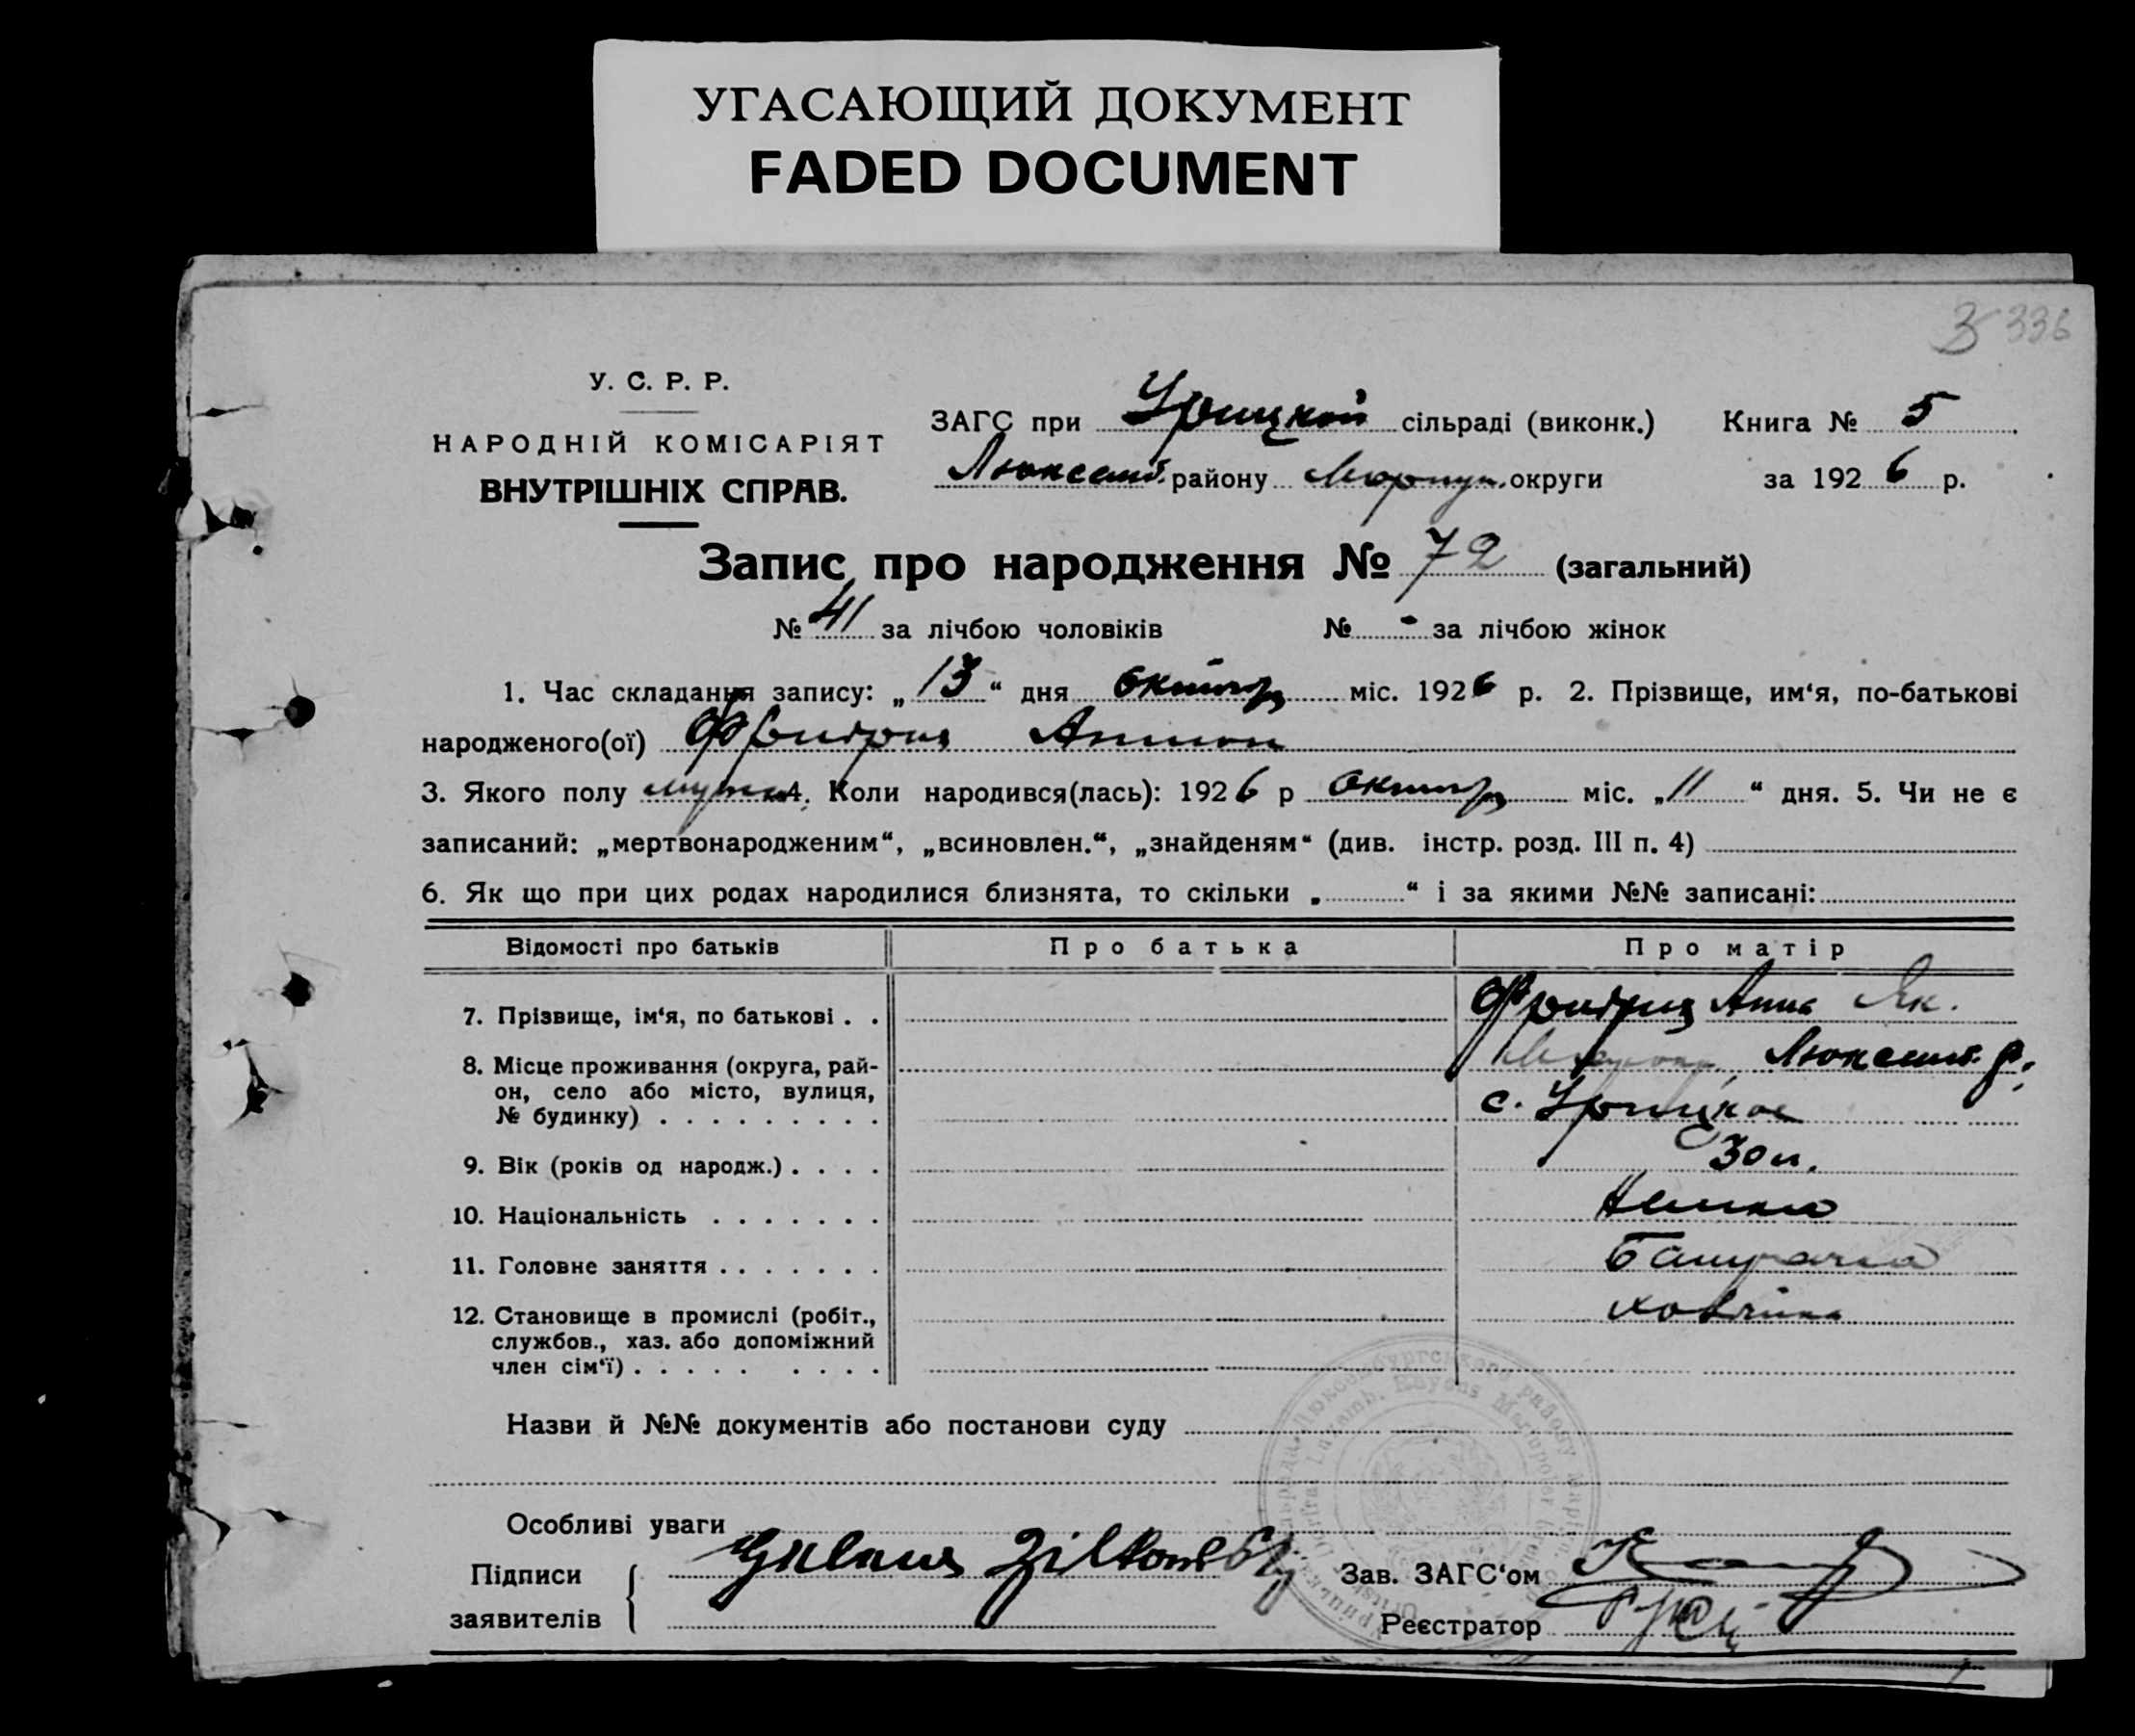 УГАСАЮЩИЙ ДОКУМЕНТ
FADED DOCUMENT
336
У. С. Р. Р.
НАРОДНІЙ КОМІСАРІЯТ
ВНУТРІШНІХ СПРАВ.
ЗАГС при Урицкой сільраді (виконк.) Книга № 5
Люксемб. району Мариуп. округи за 1926 р.
Запис про народження № 72 (загальний)
№ 41 за лічбою чоловіків № - за лічбою жінок
1. Час складання запису: „13“ дня октяр міс. 1926 р. 2. Прізвище, им‘я, по-батькові
народженого(ої) Фридриц Антон
3. Якого полу 4. Коли народився(лась): 1926 р октяр міс. „11“ дня. 5. Чи не є
записаний: „мертвонародженим“, „всиновлен.“, „знайденям“ (див. інстр. розд. III п. 4)
6. Як що при цих родах народилися близнята, то скільки „ “ і за якими №№ записані:
Відомості про батьків Про батька Про матір
7. Прізвище, ім‘я, по батькові . . Фридриц Анна Як.
8. Місце проживання (округа, рай- Люксемб. р.
он, село або місто, вулиця, с. Урицкое
№ будинку) . . . . . . . . .
9. Вік (років од народж.) . . . . 30 л.
10. Національність . . . . . . . Немка
11. Головне заняття . . . . . . .
12. Становище в промислі (робіт.,
службов., хаз. або допоміжний
член сім‘ї) . . . . . . . . .
Назви й №№ документів або постанови суду
Особливі уваги
Підписи Зав. ЗАГС‘ом
заявителів Реєстратор